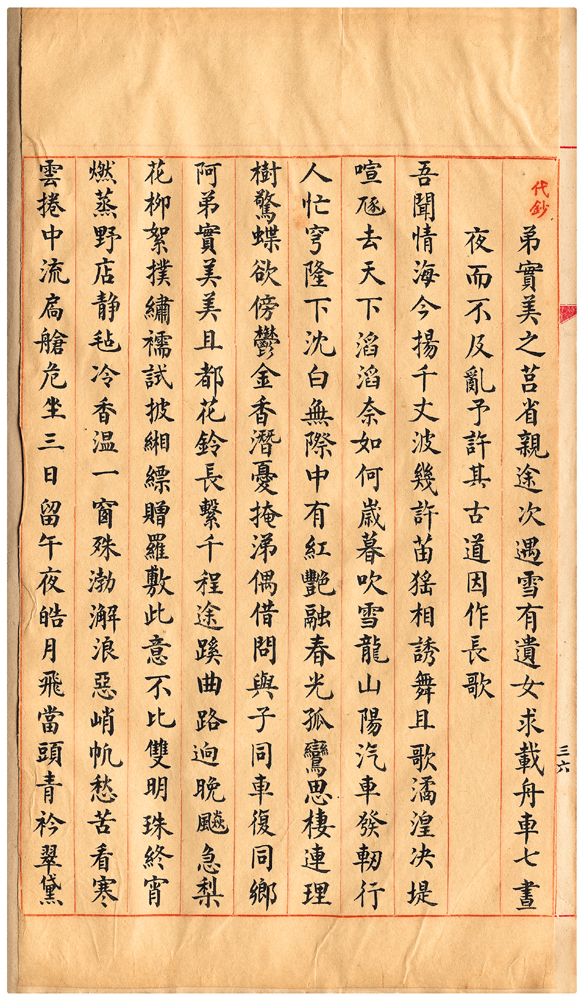 代鈔
弟實美之莒省親途次遇雪有遺女求載舟車七晝
夜而不及亂予許其古道因作長歌
吾聞情海今揚千丈波幾許苗猺相誘舞且歌潏湟决堤
喧豗去天下滔滔奈如何歲暮吹雪龍山陽汽車發軔行
人忙穹隆下沈白無際中有紅艷融春光孤鸞思棲連理
樹驚蝶欲傍鬱金香潛憂掩涕偶借問與子同車復同鄉
阿弟實美美且都花鈴長繫千程途蹊曲路逈晚飈急梨
花柳絮撲繡襦試披緗縹贈羅敷此意不比雙明珠終宵
燃蒸野店静毡冷香溫一窗殊渤澥浪惡峭帆愁苦看寒
雲捲中流扃艙危坐三日留午夜皓月飛當頭青衿翠黛
三六